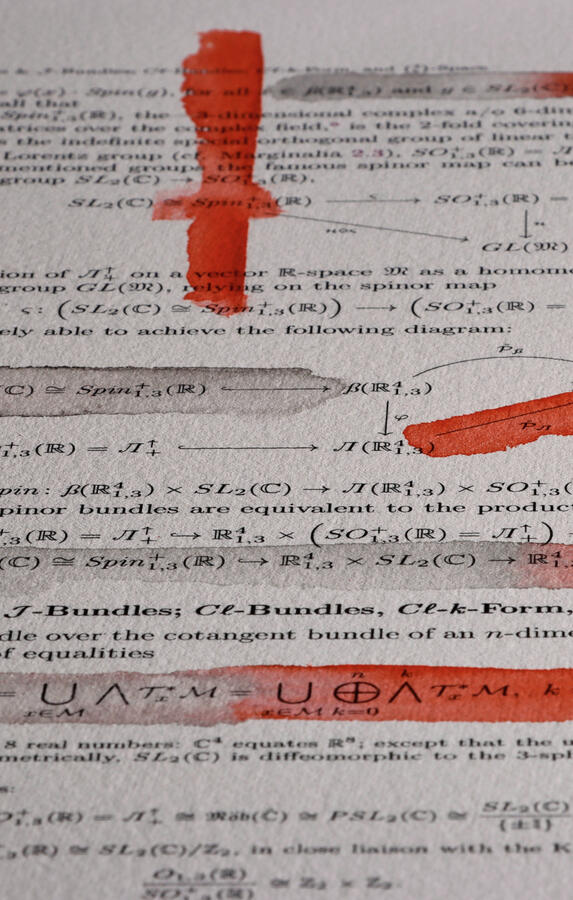 & 𝒯-Bundles; Cℓ-Bundles, Cℓ-k-Form, and
φ(x) · Spin(y), for all ∈ β(ℝ⁴₁,₃) and y ∈ SL₂(ℂ)
all that
Spin⁺₁,₃(ℝ), the 3-dimensional complex a/o 6-dim
atrices over the complex field, is the 2-fold covering
s the indefinite special orthogonal group of linear t
Lorentz group (cf. Marginalia 2.3), SO⁺₁,₃(ℝ) = Л
mentioned groups the famous spinor map can be
group SL₂(ℂ) → SO⁺₁,₃(ℝ).
SL₂(ℂ) ≅ Spin⁺₁,₃(ℝ) —ς→ SO⁺₁,₃(ℝ) =
GL(𝔐)
ion of Л⁺ on a vector ℝ-space 𝔐 as a homom
group GL(𝔐), relying on the spinor map
ς: (SL₂(ℂ) ≅ Spin⁺₁,₃(ℝ)) → (SO⁺₁,₃(ℝ) =
ely able to achieve the following diagram:
(ℂ) ≅ Spin⁺₁,₃(ℝ) ⟶ β(ℝ⁴₁,₃) P̃_β
φ
⁺₁,₃(ℝ) = Л↑₊ ⟶ Л(ℝ⁴₁,₃) P̃_Л
pin: β(ℝ⁴₁,₃) × SL₂(ℂ) → Л(ℝ⁴₁,₃) × SO⁺₁,₃(
pinor bundles are equivalent to the product
⁺₁,₃(ℝ) = Л↑₊ ↪ ℝ⁴₁,₃ × (SO⁺₁,₃(ℝ) = Л↑₊)
(ℂ) ≅ Spin⁺₁,₃(ℝ) ↪ ℝ⁴₁,₃ × SL₂(ℂ) → ℝ⁴₁,
𝒯-Bundles; Cℓ-Bundles, Cℓ-k-Form,
dle over the cotangent bundle of an n-dime
of equalities
= ⋃_{x∈M} ⋀ T*ₓM = ⋃_{x∈M} ⊕ⁿ_{k=0} ⋀ᵏ T*ₓM, k
8 real numbers: ℂ⁴ equates ℝ⁸; except that the u
metrically, SL₂(ℂ) is diffeomorphic to the 3-sp
s:
O⁺₁,₃(ℝ) = Л↑₊ ≅ Möb(ℂ) ≅ PSL₂(ℂ) ≅ SL₂(ℂ)/{±𝟙}
₁,₃(ℝ) ≅ SL₂(ℂ)/ℤ₂, in close liaison with the K
O₁,₃(ℝ)/SO⁺₁,₃(ℝ) ≅ ℤ₂ × ℤ₂.